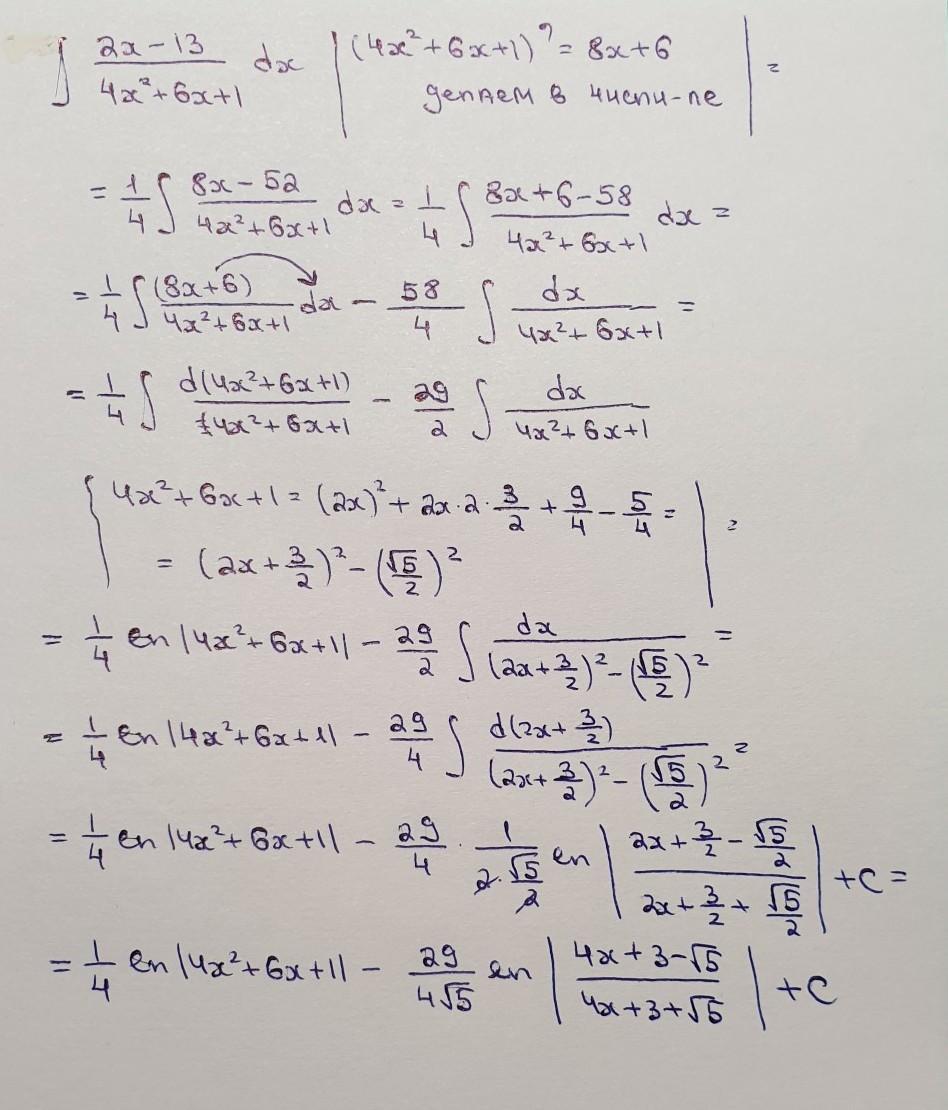 ∫ (2x-13)/(4x²+6x+1) dx | (4x²+6x+1)' = 8x+6 | =
делаем в числи-ле
= 1/4 ∫ (8x-52)/(4x²+6x+1) dx = 1/4 ∫ (8x+6-58)/(4x²+6x+1) dx =
= 1/4 ∫ (8x+6)/(4x²+6x+1) dx - 58/4 ∫ dx/(4x²+6x+1) =
= 1/4 ∫ d(4x²+6x+1)/(4x²+6x+1) - 29/2 ∫ dx/(4x²+6x+1)
{ 4x²+6x+1 = (2x)² + 2x·2·3/2 + 9/4 - 5/4 = | =
= (2x+3/2)² - (√5/2)²
= 1/4 ln |4x²+6x+1| - 29/2 ∫ dx/((2x+3/2)² - (√5/2)²) =
= 1/4 ln |4x²+6x+1| - 29/4 ∫ d(2x+3/2)/((2x+3/2)² - (√5/2)²) =
= 1/4 ln |4x²+6x+1| - 29/4 · 1/(2·√5/2) ln |(2x+3/2-√5/2)/(2x+3/2+√5/2)| + C =
= 1/4 ln |4x²+6x+1| - 29/(4√5) ln |(4x+3-√5)/(4x+3+√5)| + C